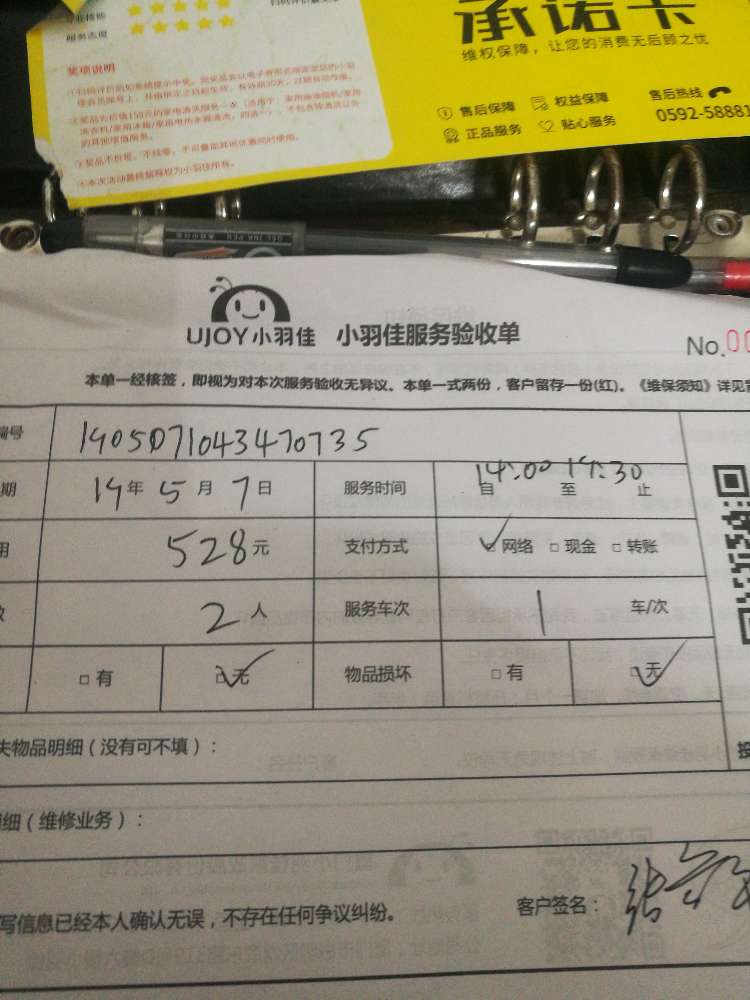 服务态度
承诺卡
维权保障，让您的消费无后顾之忧
奖项说明
售后保障 权益保障
正品服务 贴心服务
售后热线
0592-58881
③奖品不折现，不找零，不可叠加其他优惠同时使用。
④本次活动最终解释权为小羽佳所有。
UJOY小羽佳 小羽佳服务验收单
No.00
本单一经核签，即视为对本次服务验收无异议。本单一式两份，客户留存一份(红)。《维保须知》详见
编号 1905071043470735
期 19年5月7日 服务时间 14:00 17:30
自 至 止
用 528元 支付方式 网络 现金 转账
数 2人 服务车次 1 车/次
有 无 物品损坏 有 无
失物品明细（没有可不填）：
细（维修业务）：
写信息已经本人确认无误，不存在任何争议纠纷。
客户签名：